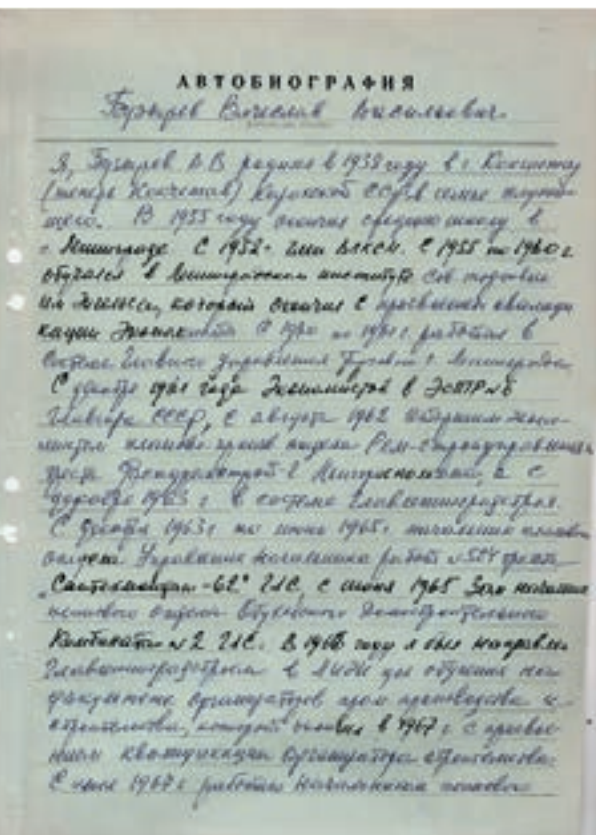 АВТОБИОГРАФИЯ
Бузырев Вячеслав Васильевич.
Я, Бузырев В В родился в 1938 году в г. Кокчетау
(теперь Кокчетав) Казахской ССР в семье служа-
щего. В 1955 году окончил среднюю школу в
г. Ленинграде С 1952- член ВЛКСМ. С 1955 по 1960 г
обучался в Ленинградском институте Сов торговли
им Энгельса, который окончил с присвоением квалифи
кации Экономиста С 1960 по 1961 г. работал в
системе Главного управления г Ленинграда
С декабря 1961 года Экономистом в №6
СССР, с августа 1962 старшим эконо-
мистом планово отдела Рем-Строй
треста г Ленгорисполкома, а с
декабря 1963 г в системе Главленинградстроя.
С декабря 1963 г по июнь 1965 г. начальник планового
отдела Управления начальника работ № треста
"Сантехмонтаж-62" ГЛС, с июня 1965 Зам начальника
планового отдела Обуховского Домостроительного
Комбината №2 ГЛС. В 1966 году я был направлен
Главленинградстроем в ЛИСИ для обучения на
факультете организаторов пром производства и
строительства, который окончил в 1967 г с присвое-
нием квалификации организатора строительства.
С июля 1967 г работал начальником планового